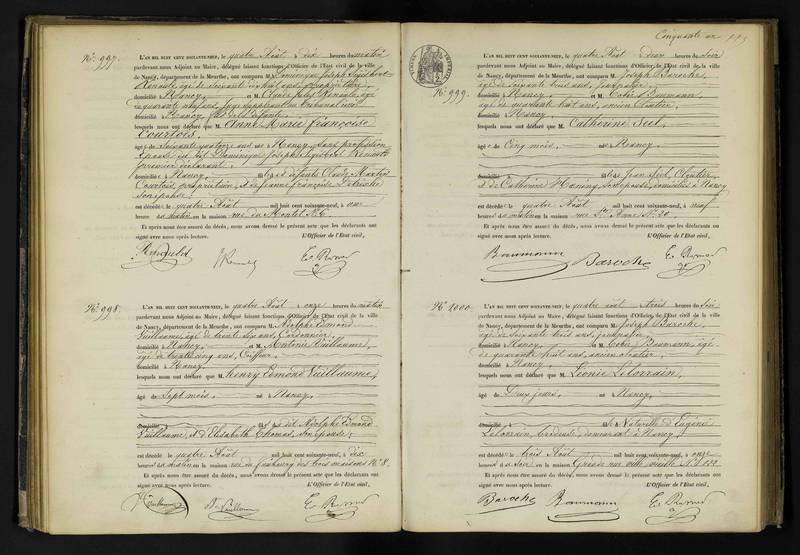 No. 997.
L'AN MIL HUIT CENT SOIXANTE-NEUF, le quatre Août à dix heures du matin
pardevant nous Adjoint au Maire, délégué faisant fonctions d'Officier de l'État civil de la ville
de Nancy, département de la Meurthe, ont comparu M. Dominique Joseph
domicilié à Nancy, et M.
domicilié Nancy, fils de la défunte,
lesquels nous ont déclaré que M. Anne Marie Françoise
Courtois,
âgée de soixante quatorze ans née à Nancy, sans profession
Épouse du dit Dominique Joseph
premier déclarant,
domiciliée à Nancy, fille des défunts Claude Martin
Courtois, propriétaire, et de Jeanne Françoise
son épouse;
est décédée le quatre Août mil huit cent soixante-neuf, à une
heure du matin en la maison rue du Montet No. 6
Et après nous être assuré du décès, nous avons dressé le présent acte que les déclarants ont
signé avec nous après lecture. L'Officier de l'État civil,
No. 998.
L'AN MIL HUIT CENT SOIXANTE-NEUF, le quatre Août à onze heures du matin
pardevant nous Adjoint au Maire, délégué faisant fonctions d'Officier de l'État civil de la ville
de Nancy, département de la Meurthe, ont comparu M. Adolphe Edmond
Vuillaume, âgé de trente six ans, Cordonnier,
domicilié à Nancy, et M. Antoine Vuillaume,
âgé de trente cinq ans, Coiffeur,
domicilié à Nancy,
lesquels nous ont déclaré que M. Henry Edmond Vuillaume,
âgé de Sept mois, né à Nancy,
domicilié fils du dit Adolphe Edmond
Vuillaume, et d'Elisabeth Thomas, son épouse;
est décédé le quatre Août mil huit cent soixante-neuf, à dix
heures du matin en la maison rue du faubourg des trois maisons No. 8.
Et après nous être assuré du décès, nous avons dressé le présent acte que les déclarants ont
signé avec nous après lecture. L'Officier de l'État civil,
Vuillaume
Cinquante un
No. 999.
L'AN MIL HUIT CENT SOIXANTE-NEUF, le quatre Août à deux heures du soir
pardevant nous Adjoint au Maire, délégué faisant fonctions d'Officier de l'État civil de la ville
de Nancy, département de la Meurthe, ont comparu M. Joseph Baroche,
âgé de soixante trois ans, journalier,
domicilié à Nancy, et M. Baumann,
âgé de quarante huit ans, ancien
domicilié à Nancy,
lesquels nous ont déclaré que M. Catherine Seel,
âgée de Cinq mois, née à Nancy,
fille de Jean Seel, Cloutier,
et de Catherine son épouse, domiciliés à Nancy
est décédée le quatre Août mil huit cent soixante-neuf, à neuf
heures du matin en la maison rue Ste. Anne No. 20.
Et après nous être assuré du décès, nous avons dressé le présent acte que les déclarants ont
signé avec nous après lecture. L'Officier de l'État civil,
Baumann Baroche
No. 1000.
L'AN MIL HUIT CENT SOIXANTE-NEUF, le quatre août à trois heures du soir
pardevant nous Adjoint au Maire, délégué faisant fonctions d'Officier de l'État civil de la ville
de Nancy, département de la Meurthe, ont comparu M. Joseph Baroche,
âgé de soixante trois ans, journalier,
domicilié à Nancy, et M. Baumann, âgé
de quarante huit ans, ancien
domicilié à Nancy,
lesquels nous ont déclaré que M. Léonie Lelorrain,
âgée de Deux jours, née à Nancy,
fille Naturelle d'Eugénie
Lelorrain, Brodeuse, demeurant à Nancy;
est décédée le trois Août mil huit cent soixante-neuf, à onze
heures du soir en la maison Grande rue ville vieille
Et après nous être assuré du décès, nous avons dressé le présent acte que les déclarants ont
signé avec nous après lecture. L'Officier de l'État civil,
Baroche Baumann